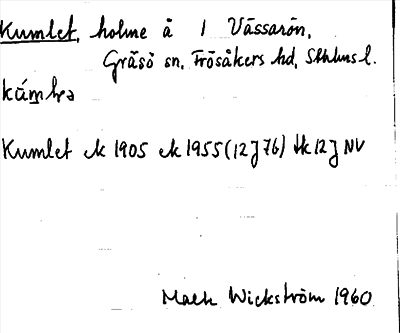 Kumlet, holme å 1 Vässarön,
Gräsö sn, Frösåkers hd, Sthlms l.
Kumlet ek 1905 ek 1955 (12J76) Hk 12J NV
Mats Wickström 1960